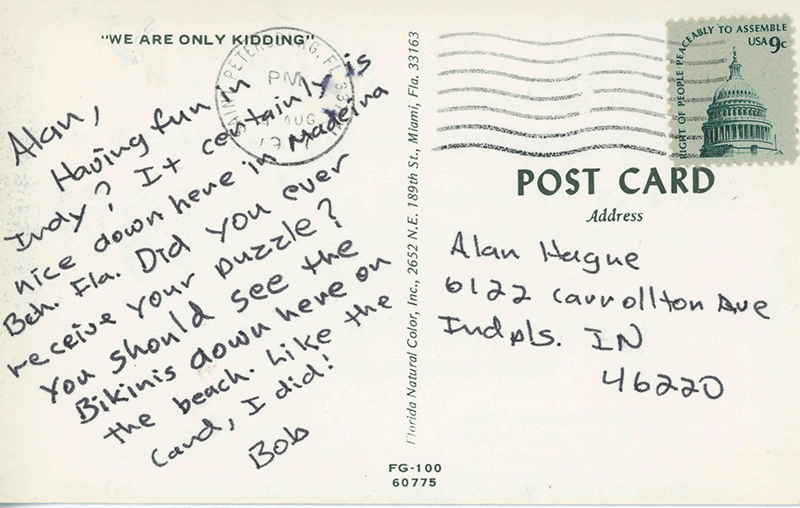 "WE ARE ONLY KIDDING"
Alan,
Having fun in
Indy? It certainly is
nice down here in Madeira
Bch. Fla. Did you ever
receive your puzzle?
You should see the
Bikinis down here on
the beach. Like the
Card, I did!
Bob
PETERSBURG, FL
PM
AUG
19
Florida Natural Color, Inc., 2652 N.E. 189th St., Miami, Fla. 33163
RIGHT OF PEOPLE PEACEABLY TO ASSEMBLE
USA 9c
POST CARD
Address
Alan Hague
6122 Carrollton Ave
Indpls. IN
46220
FG-100
60775